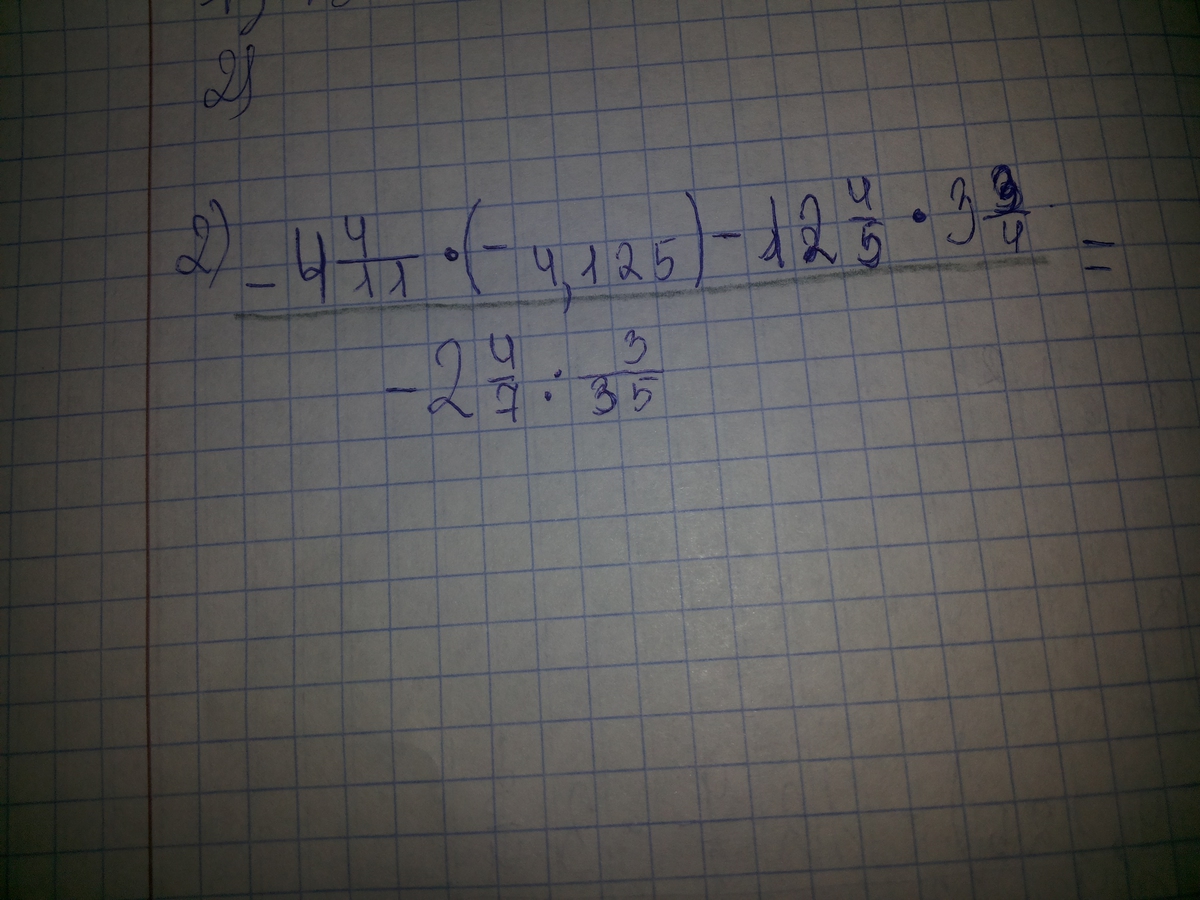 2)
2) -4 4/11 · (-4,125) - 12 4/5 · 3 3/4 =
-2 4/7 : 3/35